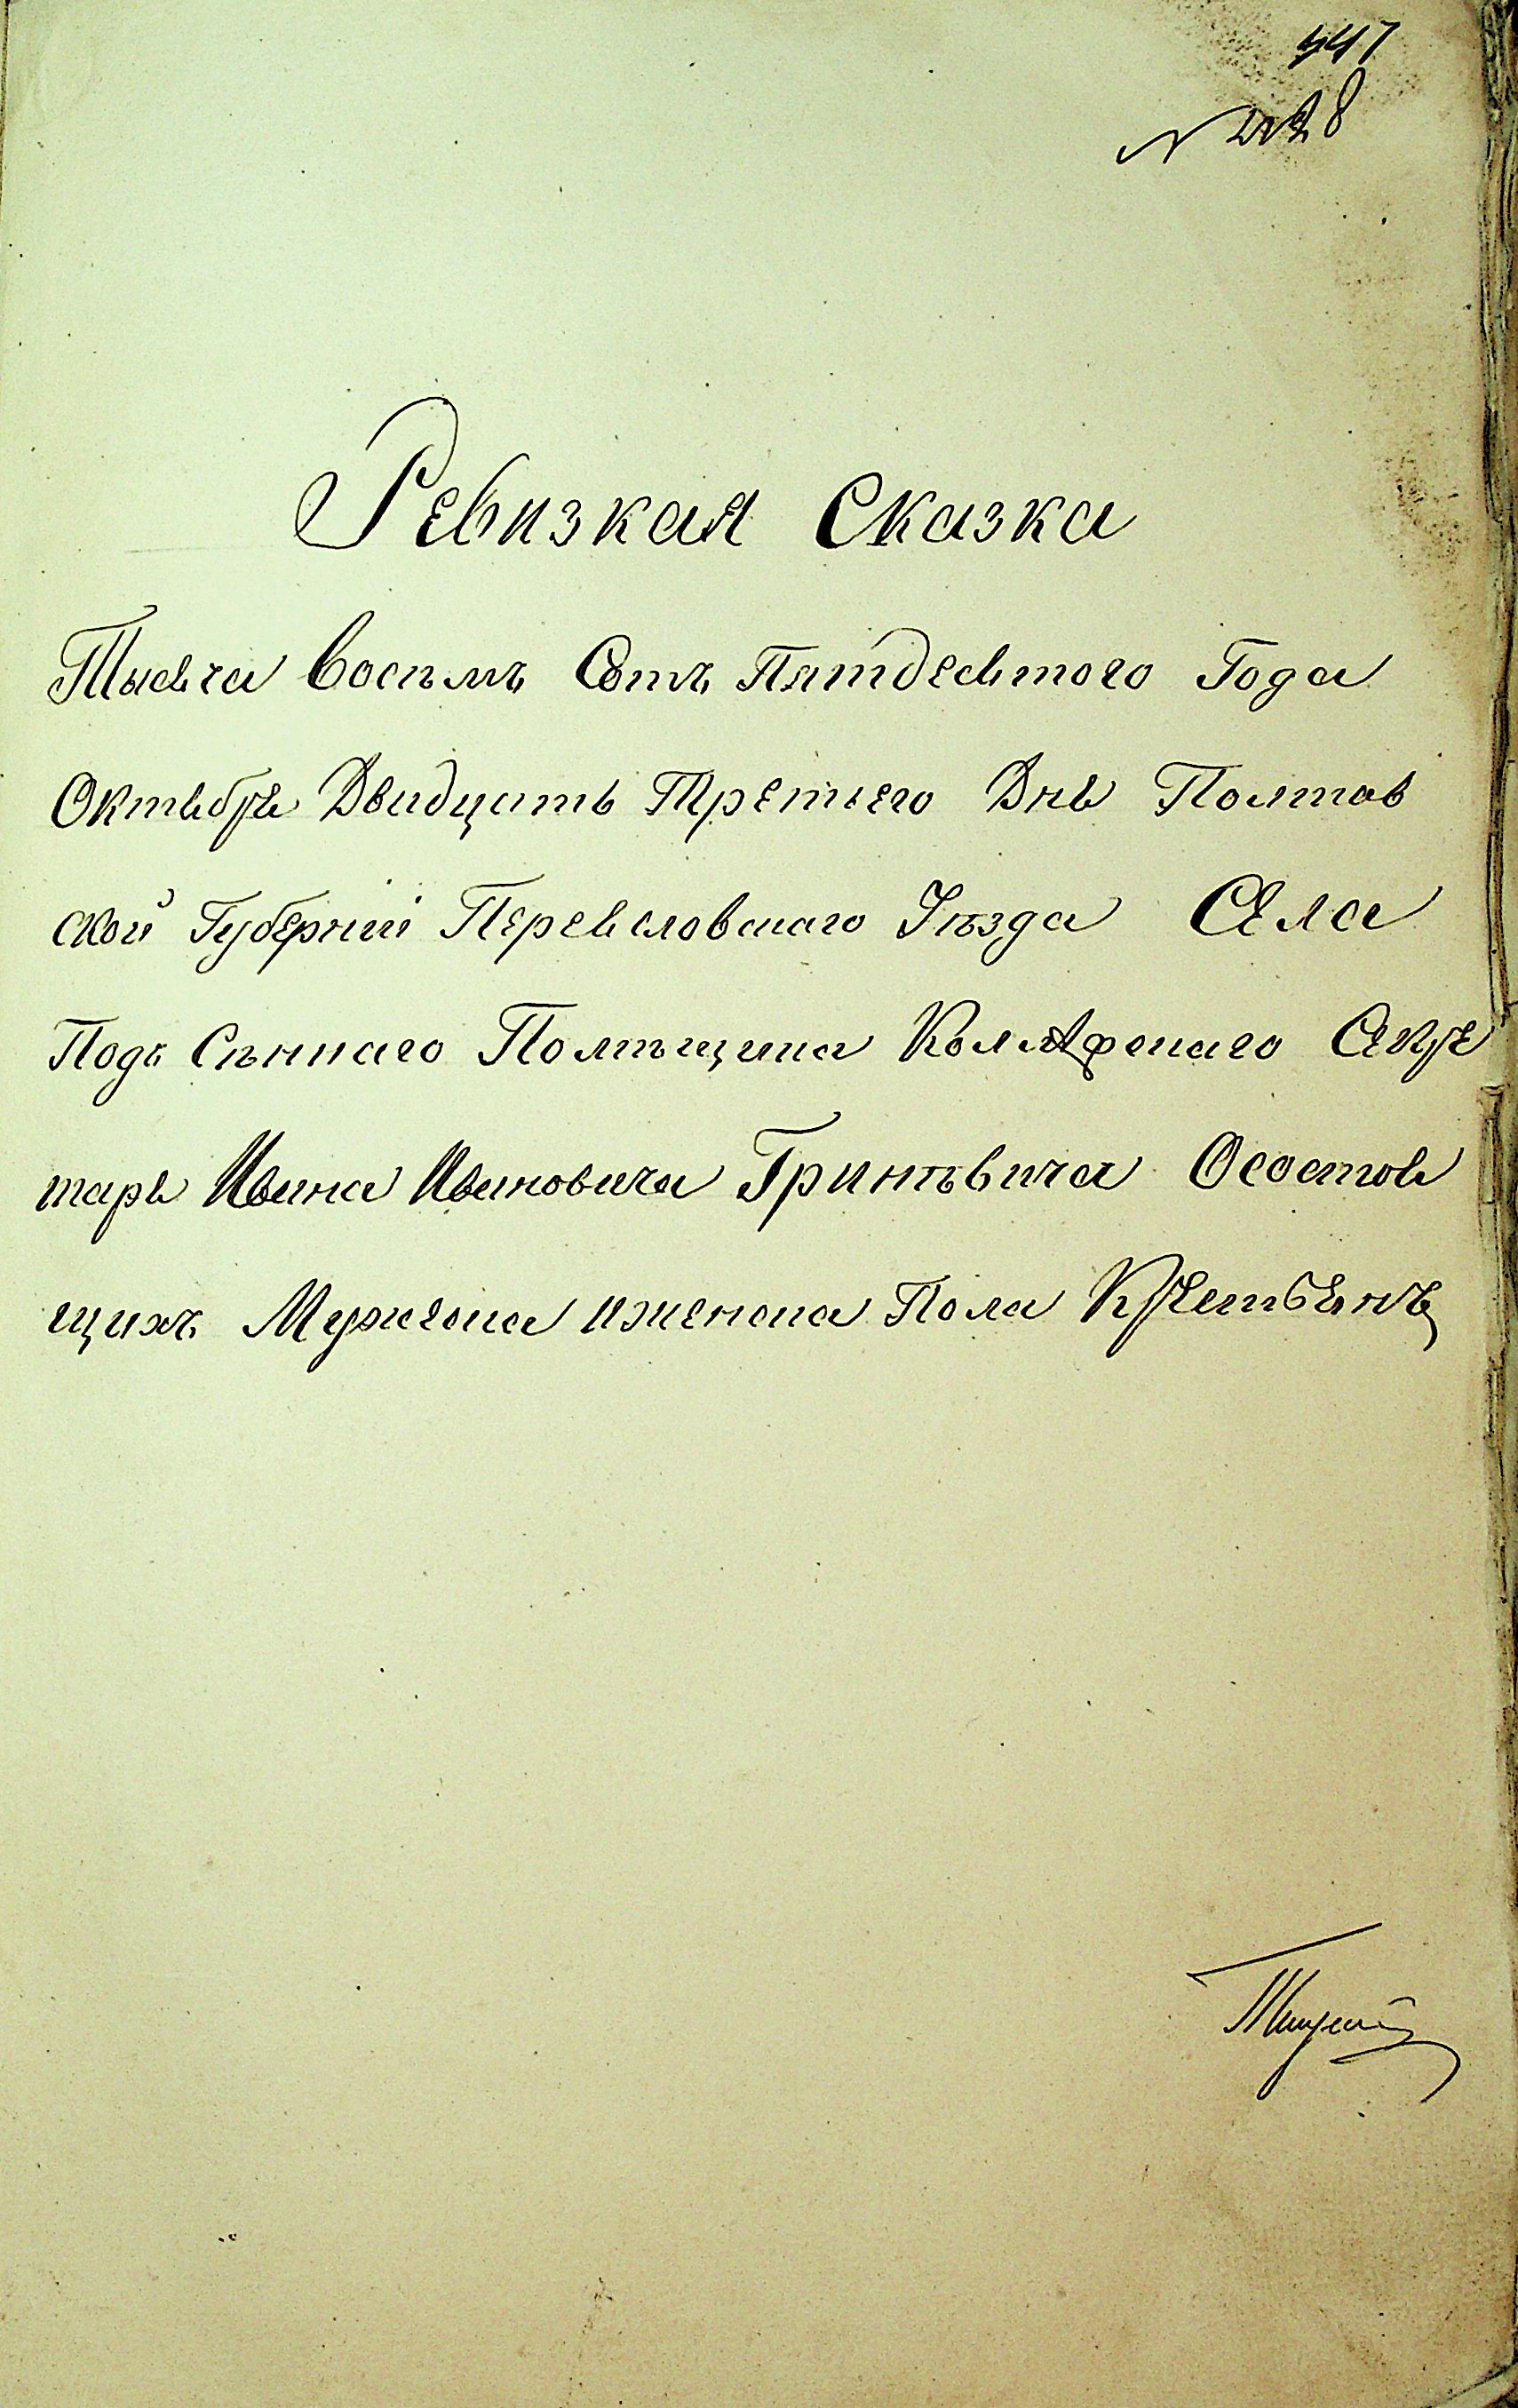 441
Ревизкая Сказка
Тысяча Восъмъ Сотъ Пятдесятого Года
Октября Двадцать Третьего Дня Полтав
ской Губерніи Переясловскаго Уѣзда Села
Подъ Сѣннаго Помѣщика Колежскаго Секре
таря Ивана Ивановича Гринѣвича Осостоя
щихъ Мужеска иженска Пола Крестьянъ